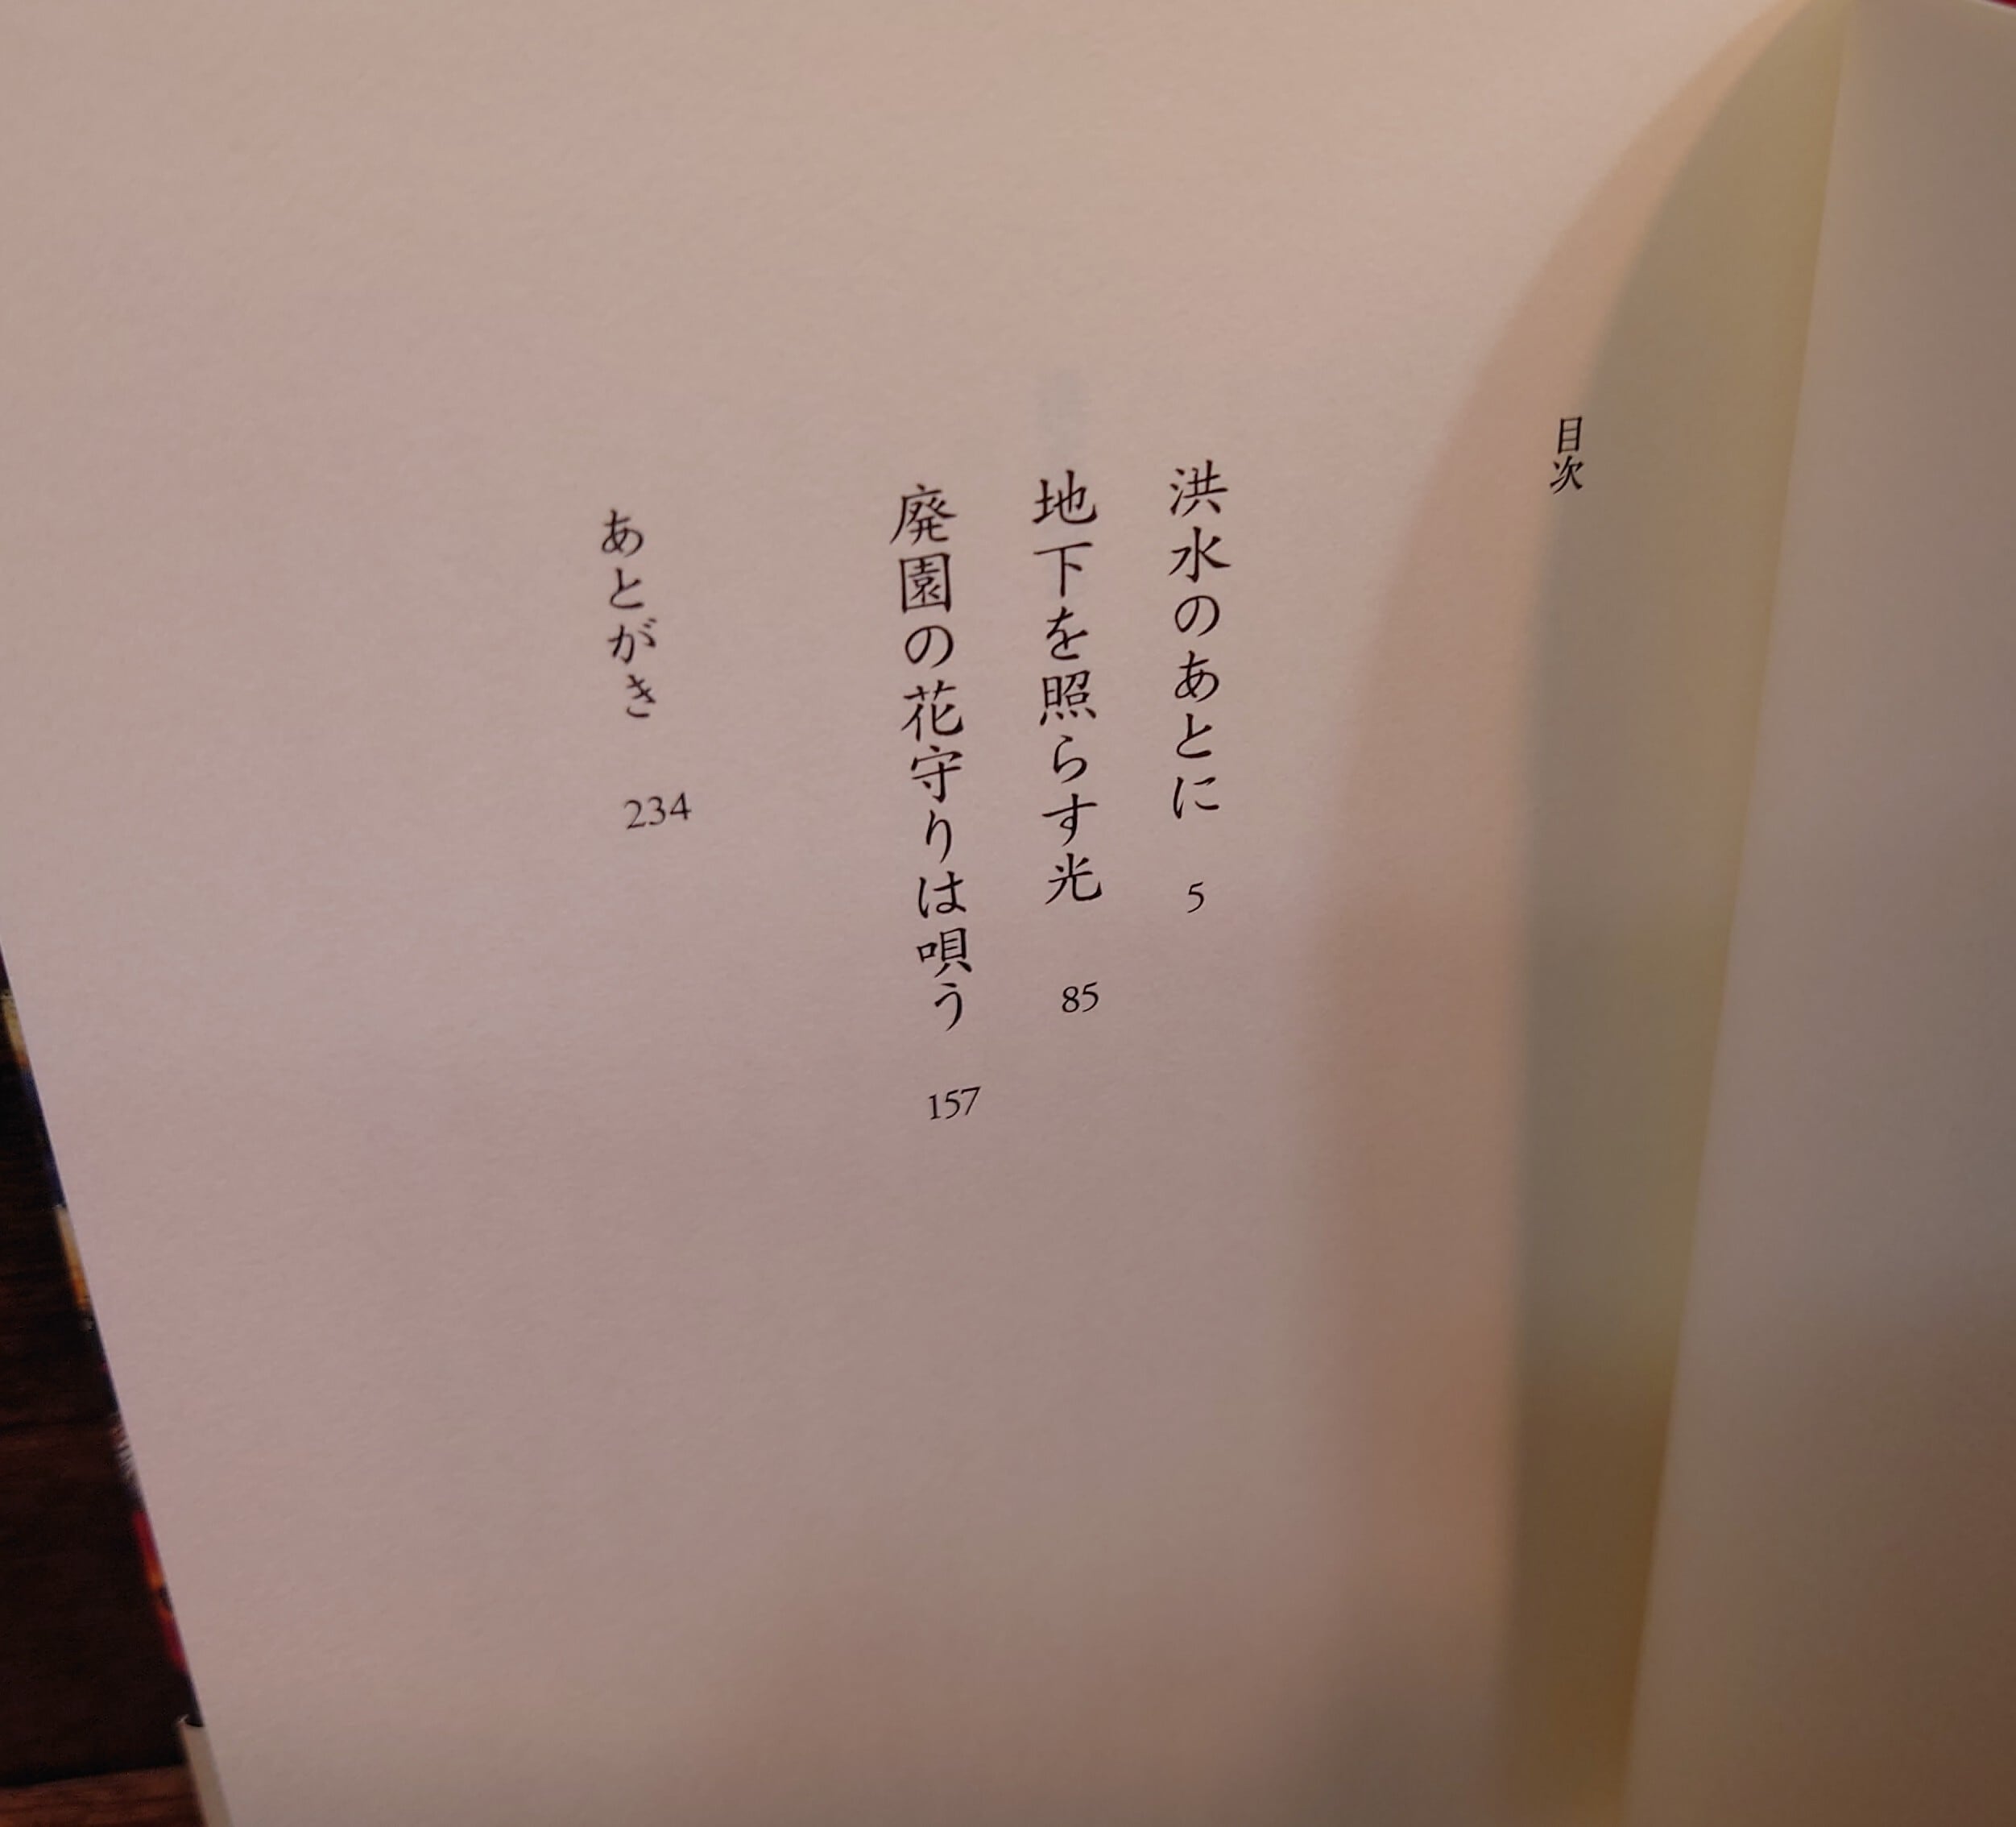 目次
洪水のあとに 5
地下を照らす光 85
廃園の花守りは唄う 157
あとがき 234